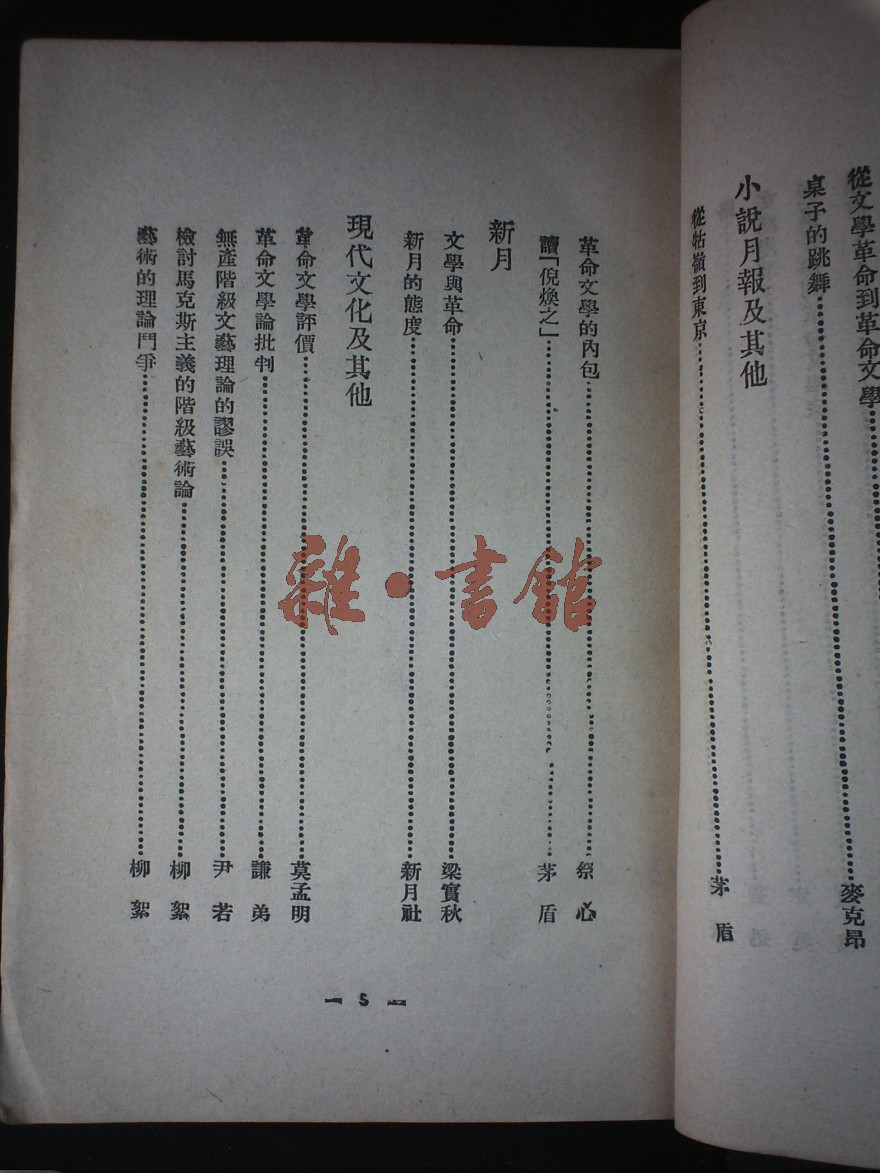 從文學革命到革命文學……麥克昂
桌子的跳舞……
小說月報及其他
從牯嶺到東京……茅盾
革命文學的內包……祭心
讀「倪煥之」……茅盾
新月
文學與革命……梁實秋
新月的態度……新月社
現代文化及其他
革命文學評價……莫孟明
革命文學論批判……謙弟
無產階級文藝理論的謬誤……尹若
檢討馬克斯主義的階級藝術論……柳絮
藝術的理論鬥爭……柳絮
— 5 —
雜·書館